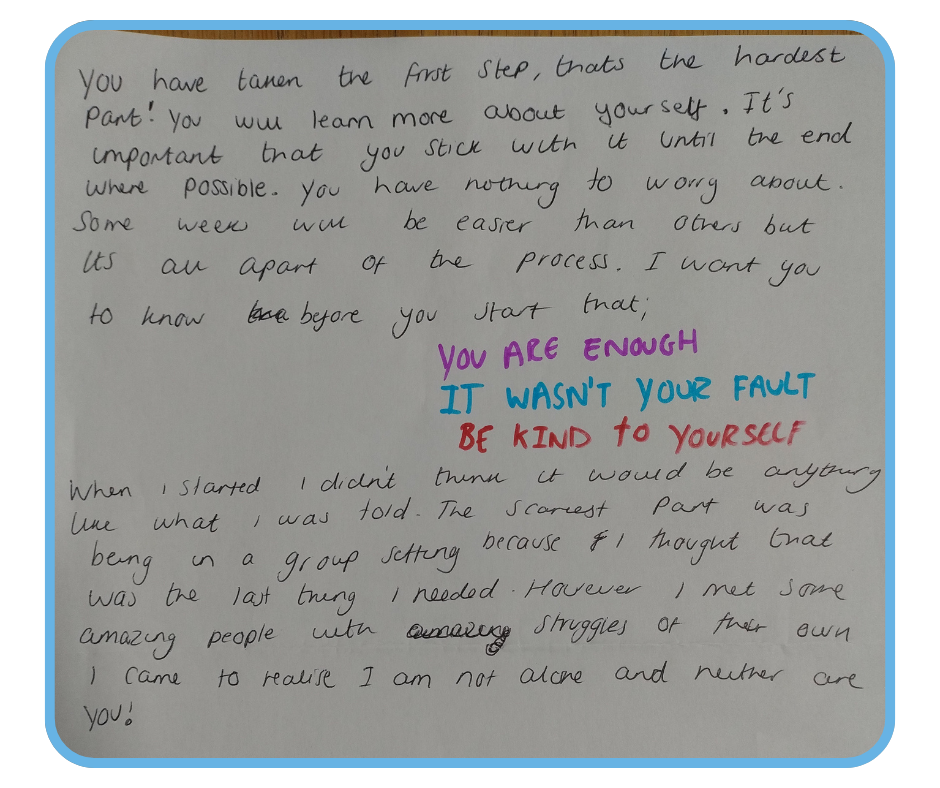 You have taken the first step, thats the hardest
Part! You will learn more about yourself. It's
important that you stick with it until the end
where possible. You have nothing to worry about.
Some week will be easier than others but
its all apart of the process. I want you
to know before you start that;
YOU ARE ENOUGH
IT WASN'T YOUR FAULT
BE KIND to YOURSELF
When I started I didn't think it would be anything
like what I was told. The scariest part was
being in a group setting because I thought that
was the last thing I needed. However I met some
amazing people with amazing struggles of their own
I came to realise I am not alone and neither are
you!